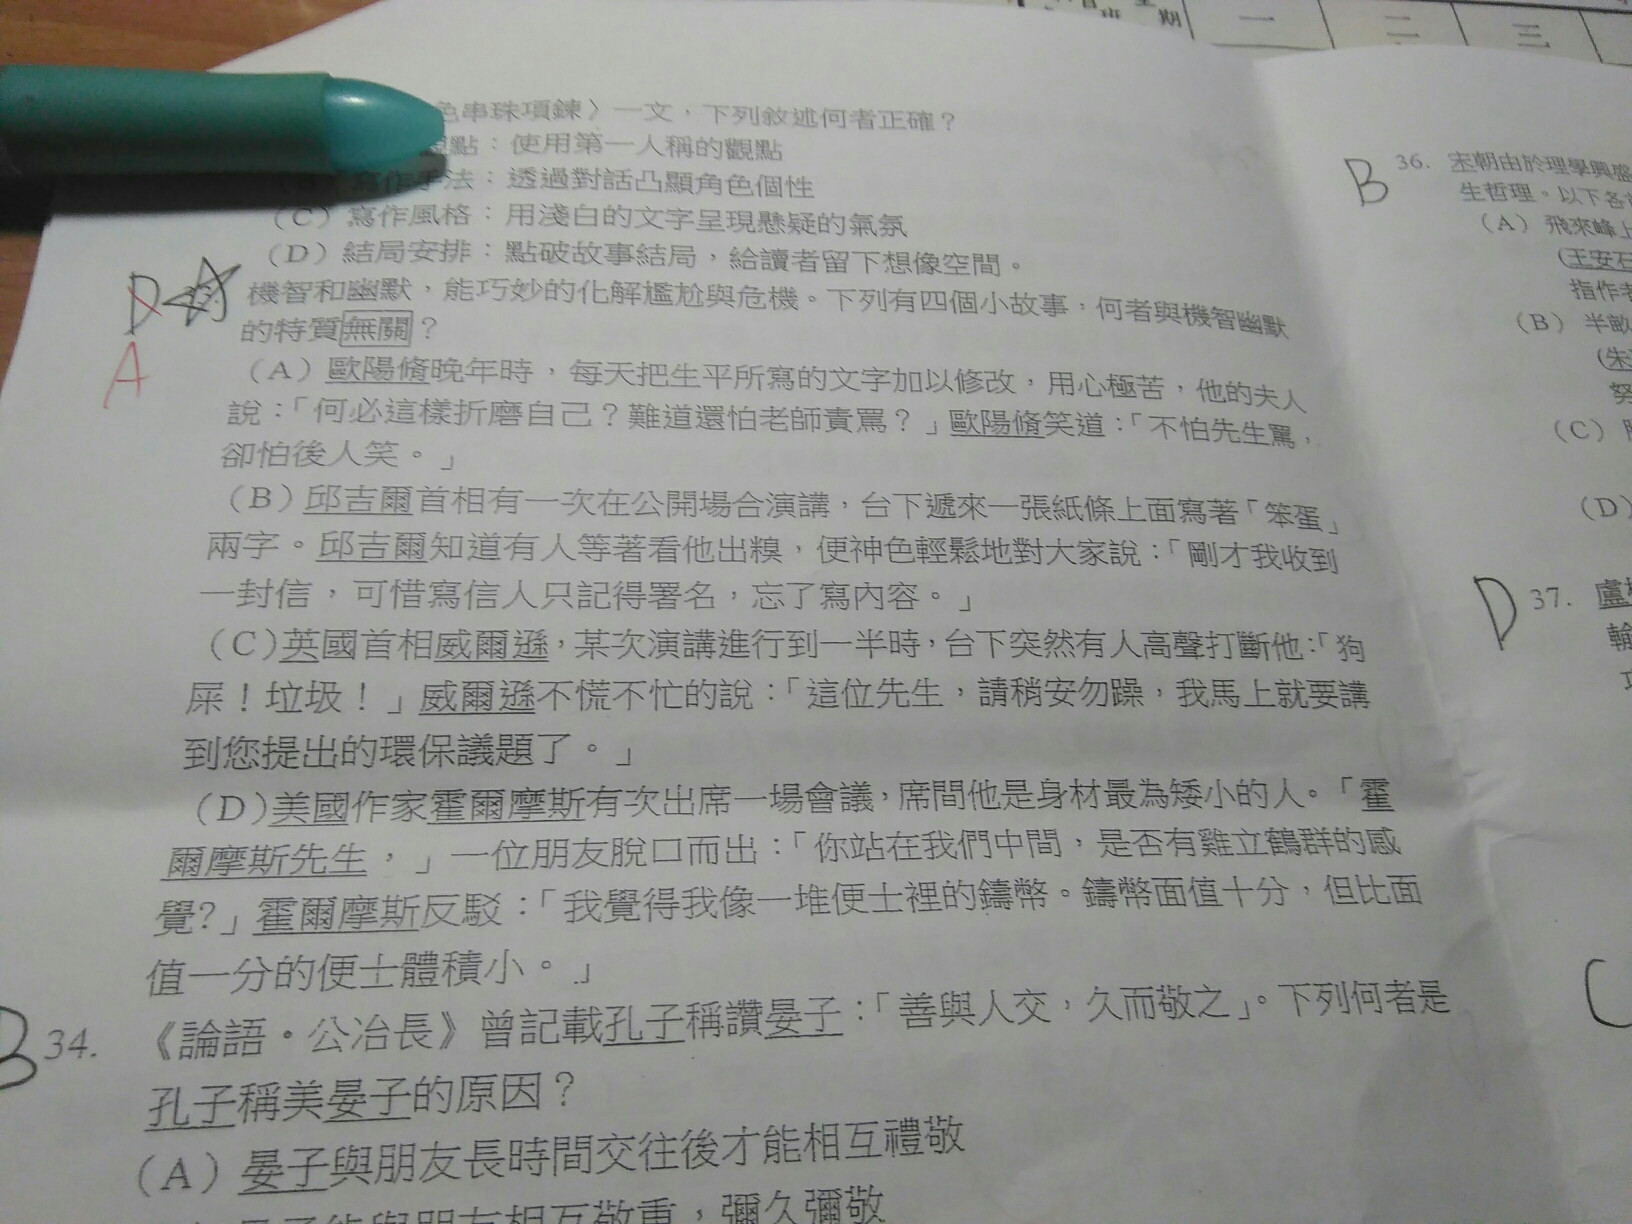 期
一
二
三
色串珠項鍊〉一文，下列敘述何者正確？
點：使用第一人稱的觀點
寫作手法：透過對話凸顯角色個性
（C）寫作風格：用淺白的文字呈現懸疑的氣氛
（D）結局安排：點破故事結局，給讀者留下想像空間。
D
機智和幽默，能巧妙的化解尷尬與危機。下列有四個小故事，何者與機智幽默
的特質無關？
A
（A）歐陽脩晚年時，每天把生平所寫的文字加以修改，用心極苦，他的夫人
說：「何必這樣折磨自己？難道還怕老師責罵？」歐陽脩笑道：「不怕先生罵，
卻怕後人笑。」
（B）邱吉爾首相有一次在公開場合演講，台下遞來一張紙條上面寫著「笨蛋」
兩字。邱吉爾知道有人等著看他出糗，便神色輕鬆地對大家說：「剛才我收到
一封信，可惜寫信人只記得署名，忘了寫內容。」
（C）英國首相威爾遜，某次演講進行到一半時，台下突然有人高聲打斷他：「狗
屎！垃圾！」威爾遜不慌不忙的說：「這位先生，請稍安勿躁，我馬上就要講
到您提出的環保議題了。」
（D）美國作家霍爾摩斯有次出席一場會議，席間他是身材最為矮小的人。「霍
爾摩斯先生，」一位朋友脫口而出：「你站在我們中間，是否有雞立鶴群的感
覺?」霍爾摩斯反駁：「我覺得我像一堆便士裡的鑄幣。鑄幣面值十分，但比面
值一分的便士體積小。」
B 34. 《論語・公冶長》曾記載孔子稱讚晏子：「善與人交，久而敬之」。下列何者是
孔子稱美晏子的原因？
（A）晏子與朋友長時間交往後才能相互禮敬
晏子能與朋友相互敬重，彌久彌敬
B 36. 宋朝由於理學興盛
生哲理。以下各
（A）飛來峰上
（王安石
指作者
（B）半畝
（朱
努
（C）
（D）
D 37. 盧
輸
C